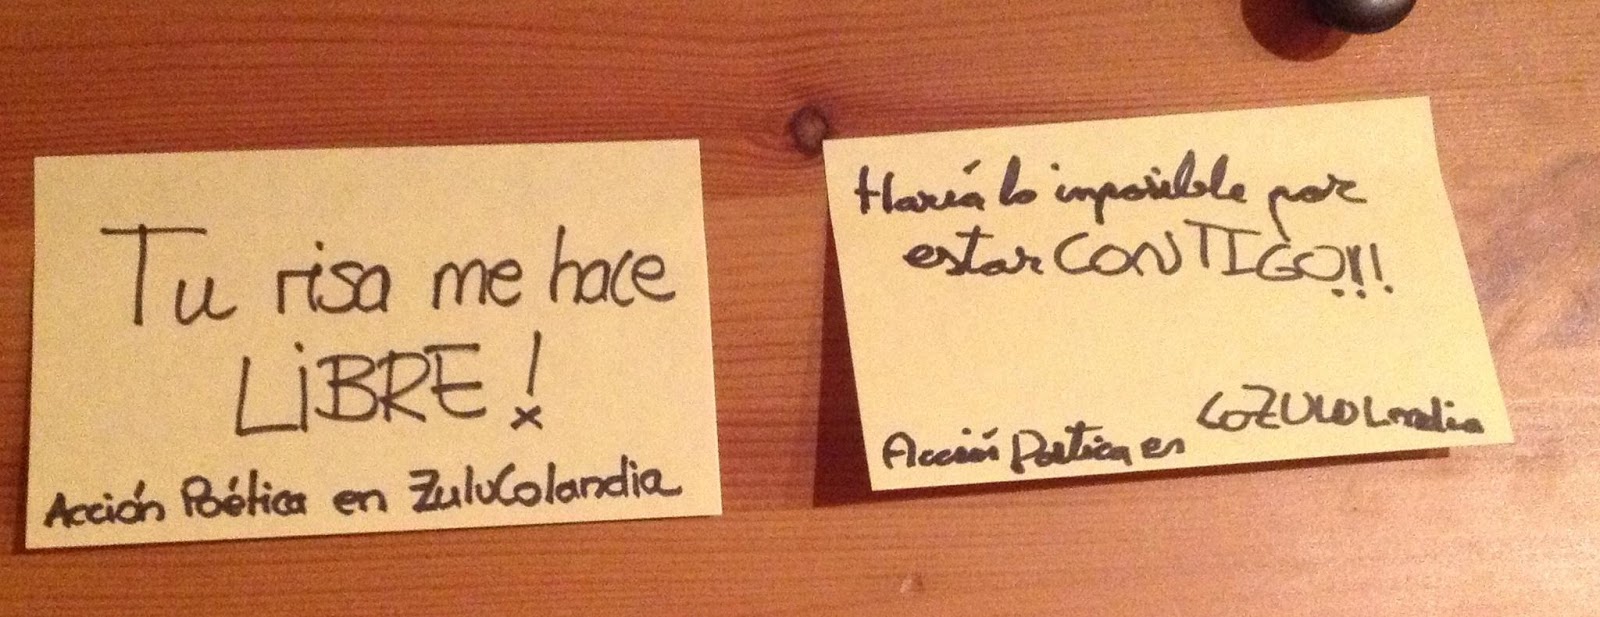 Tu risa me hace
LiBRE!
Acción Poética en ZuluColandia
Haría lo imposible por
estar CONTIGO!!!
Acción Poética en CoZULOLandia